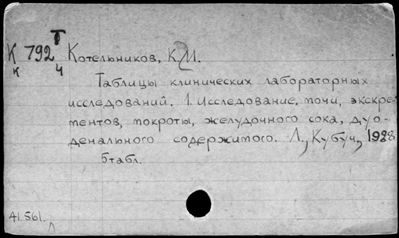 Т
К 792 Котельников, К.И.
к ч
Таблицы клинических лабораторных
исследований. 1. Исследование мочи, экскре-
ментов, мокроты, желудочного сока, дуо-
денального содержимого. Л., Кубуч, 1928
5табл.
41.561.